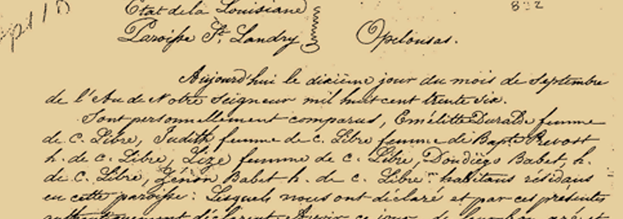 État de la Louisiane 832
Paroisse St. Landry Opelousas.
Aujourd'hui le dixième jour du mois de Septembre
de l'An de Notre Seigneur mil huit cent trente six.
Sont personnellement comparus, Emélitte Duralde femme
de c. Libre, Judith femme de c. Libre femme de Bapte Prevost
h. de c. Libre, Lize femme de c. Libre, Dondiego Babet, h.
de c. Libre, Zénon Babet h. de c. Libre habitans résidans
en cette paroisse: Lesquels nous ont déclaré et par ces présentes